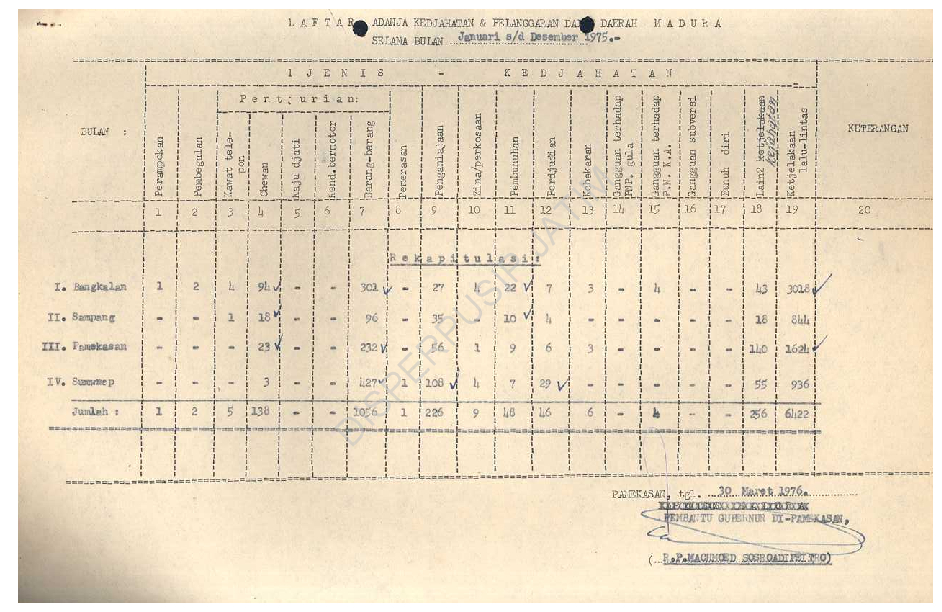 L A F T A R ADANJA KEDJAHATAN & PELANGGARAN DAERAH M A D U R A
SELAMA BULAN Januari s/d Desember 1975.-
DJENIS - K E D J A H A T A N
BULAN :
P e n t j u r i a n :
KETERANGAN
Perampokan
Pembegalan
Kawat tele-
pon
Hewan
Kaju djati
Kend.bermotor
Barang-barang
Pemerasan
Penganiajaan
Zina/perkosaan
Pembunuhan
Perdjudian
Kebakaran
Gangguan terhadap
PNP. gula
Gangguan terhadap
P.N. K.A.
Gangguan subversi
Bunuh diri
Lain2 kedjahatan
Ketjelakaan
lalu-lintas
1 2 3 4 5 6 7 8 9 10 11 12 13 14 15 16 17 18 19 20
R e k a p i t u l a s i :
I. Bangkalan 1 2 4 94 - - 301 - 27 4 22 7 3 - 4 - - 43 3018
II. Sampang - - 1 18 - - 96 - 35 - 10 4 - - - - - 18 844
III. Pamekasan - - - 23 - - 232 - 56 1 9 6 3 - - - - 140 1624
IV. Sumenep - - - 3 - - 427 1 108 4 7 29 - - - - - 55 936
Jumlah : 1 2 5 138 - - 1056 1 226 9 48 46 6 - 4 - - 256 6422
DISPERPUSIP JATIM
PAMEKASAN, tgl. 30 Maret 1976.
PEMBANTU GUBERNUR DI-PAMEKASAN,
(R.P.MACHMOED SOSROADIPOETRO)